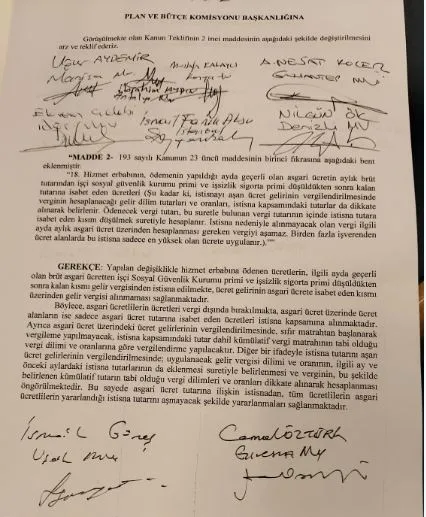 PLAN VE BÜTÇE KOMİSYONU BAŞKANLIĞINA
Görüşülmekte olan Kanun Teklifinin 2 inci maddesinin aşağıdaki şekilde değiştirilmesini
arz ve teklif ederiz.
Uğur AYDEMİR
Manisa
A. NEŞAT KOÇER
GAZİANTEP MV
İbrahim AYDIN
Antalya
İsmail Faruk Aksu
İstanbul
NİLGÜN ÖK
Denizli MV
"MADDE 2- 193 sayılı Kanunun 23 üncü maddesinin birinci fıkrasına aşağıdaki bent
eklenmiştir.
"18. Hizmet erbabının, ödemenin yapıldığı ayda geçerli olan asgari ücretin aylık brüt
tutarından işçi sosyal güvenlik kurumu primi ve işsizlik sigorta primi düşüldükten sonra kalan
tutarına isabet eden ücretleri (Şu kadar ki, istisnayı aşan ücret gelirinin vergilendirilmesinde
verginin hesaplanacağı gelir dilim tutarları ve oranları, istisna kapsamındaki tutarlar da dikkate
alınarak belirlenir. Ödenecek vergi tutarı, bu suretle bulunan vergi tutarının içinde istisna tutara
isabet eden kısım düşülmek suretiyle hesaplanır. İstisna nedeniyle alınmayacak olan vergi ilgili
ayda aylık asgari ücret üzerinden hesaplanması gereken vergiyi aşamaz. Birden fazla işverenden
ücret alanlarda bu istisna sadece en yüksek olan ücrete uygulanır.).""
GEREKÇE: Yapılan değişiklikle hizmet erbabına ödenen ücretlerin, ilgili ayda geçerli
olan brüt asgari ücretten işçi Sosyal Güvenlik Kurumu primi ve işsizlik sigorta primi düşüldükten
sonra kalan kısmı gelir vergisinden istisna edilmekte, ücret gelirinin asgari ücrete isabet eden kısmı
üzerinden gelir vergisi alınmaması sağlanmaktadır.
Böylece, asgari ücretlilerin ücretleri vergi dışında bırakılmakta, asgari ücret üzerinde ücret
alanların ise sadece asgari ücret tutarına isabet eden ücretleri istisna kapsamına alınmaktadır.
Ayrıca asgari ücret üzerindeki ücret gelirlerinin vergilendirilmesinde, sıfır matrahtan başlanarak
vergileme yapılmayacak, istisna kapsamındaki tutar dahil kümülatif vergi matrahının tabi olduğu
vergi dilimi ve oranlarına göre vergilendirme yapılacaktır. Diğer bir ifadeyle istisna tutarını aşan
ücret gelirlerinin vergilendirilmesinde; uygulanacak gelir vergisi dilimi ve oranının, ilgili ay ve
önceki aylardaki istisna tutarlarının da eklenmesi suretiyle belirlenmesi ve verginin, bu şekilde
belirlenen kümülatif tutarın tabi olduğu vergi dilimleri ve oranları dikkate alınarak hesaplanması
öngörülmektedir. Bu sayede asgari ücret tutarına ilişkin istisnadan, tüm ücretlilerin asgari
ücretlilerin yararlandığı istisna tutarını aşmayacak şekilde yararlanmaları sağlanmaktadır.
İsmail Güneş
Uşak
Cemal ÖZTÜRK